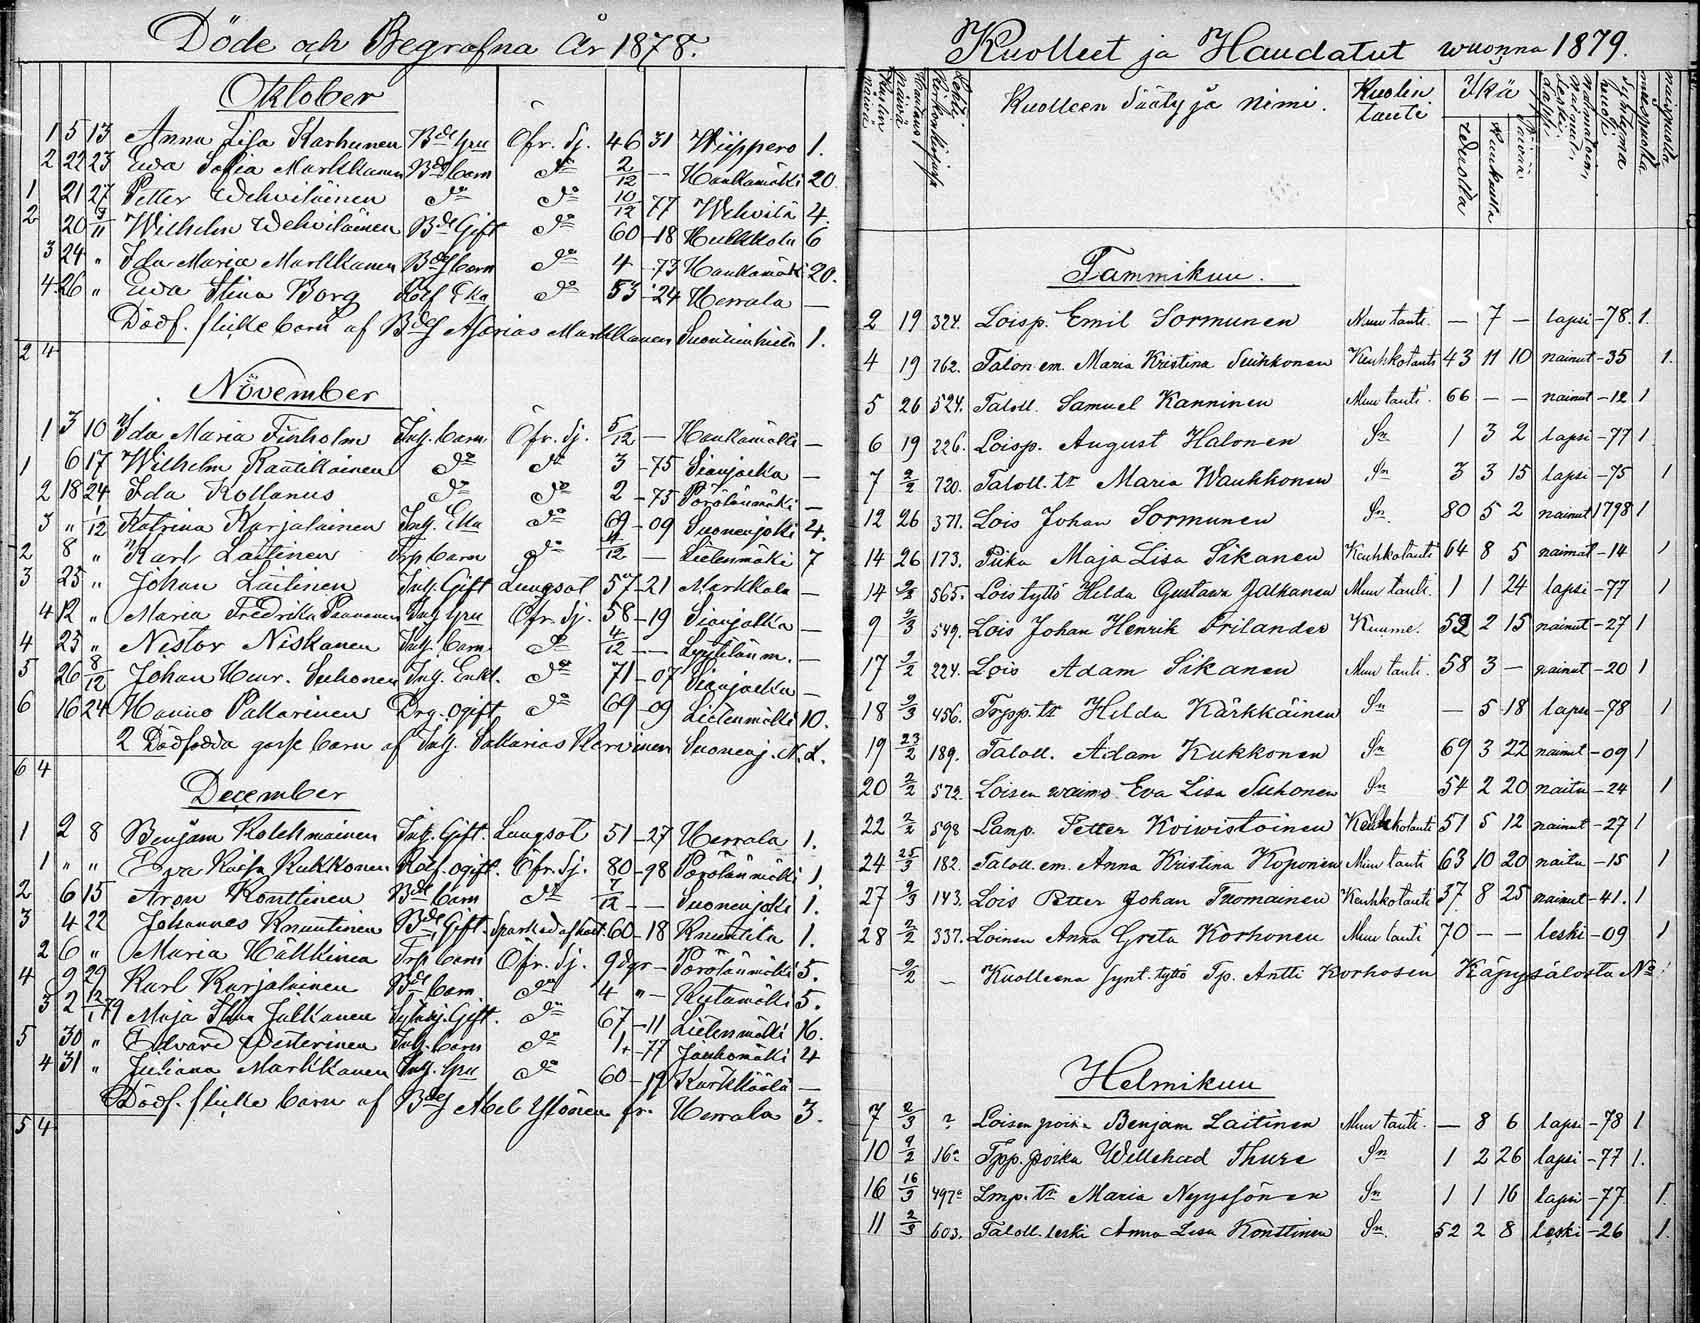 Döde och Begrafna År 1878.
Oktober
1 5 13 Anna Lisa Karhunen Bde Gru Öfr. Sj. 46 31 Wiippero 1.
2 22 23 Ewa Sofia Markkanen Bds barn do 2/12 — Haukamäki 20.
1 21 27 Petter Wehviläinen do do 10/12 77 Wehvilä 4.
2 20 3/11 Wilhelm Wehviläinen Bde Gift do 60 -18 Kukkola 6
3 24 " Ida Maria Markkanen Bdes barn do 4 -73 Haukamäki 20.
4 26 " Ewa Stina Borg Eka do 53 -24 Herrala —
Dödf. flicke barn af Bdes Markkanen 1.
2 4
November
1 3 10 Ida Maria Finholm Inh. barn Öfr. Sj. 5/12 — Haukamäki —
1 6 17 Wilhelm Rautiainen do do 3 -75 Sianjalka —
2 18 24 Ida Kollanus do do 2 -75 Pörölänmäki —
3 " 1/12 Katrina Karjalainen Inh. Eka do 69 -09 Suonenjoki 4.
2 8 " Karl Laitinen Trp barn do 4/12 — Lielenmäki 7
3 25 " Johan Laitinen Inh. Gift Lungsot 57 -21 Markkala —
4 12 " Maria Fredrika Paananen Inh Gru Öfr. Sj. 58 -19 Sianjalka —
4 23 " Nestor Niskanen Inh. barn do 4/12 — —
5 26 8/12 Johan Henr. Suhonen Inh. Enkl. do 71 -07 Sianjalka —
6 16 24 Hanno Pakarinen Drg. ogift do 69 -09 Lielenmäki 10.
2 Dödfödda gosse barn af Inh. Sakarias Karvinen Suonenj. N. 2.
6 4
December
1 2 8 Benjam Kolehmainen Inh. Gift. Lungsot 51 -27 Herrala 1.
1 " " Eva Kaisa Kukkonen ogift. Öfr. Sj. 80 -98 Pörölänmäki 1.
2 6 15 Aron Konttinen Bds barn do 7/12 — Suonenjoki 1.
3 4 22 Johannes Knuutinen Bde Gift. 60 -18 Knuutila 1.
2 6 " Maria Häkkinen Trp barn Öfr. Sj. 9 dgr — Pörölänmäki 5.
4 9 29 Karl Karjalainen Bds barn do 4 " — Kutumäki 5.
3 2 12/1 79 Maja Stina Jalkanen Gift. do 67 -11 Lielenmäki 16.
5 30 " Edvard Westerinen Inh. barn do 1 -77 Jauhomäki 4
4 31 " Juliana Markkanen Inh. Gru do 60 -19 Karkkäälä —
Dödf. flicke barn af Bdes Abel Ylönen fr. Herrala 3.
5 4
Kuolleet ja Haudatut wuonna 1879.
Kuolleen Sääty ja nimi. Kuolin tauti Ikä
Wuosia Kuukausia Päiviä
Tammikuu.
2 19 324. Loisp. Emil Sormunen Muu tauti. — 7 — lapsi -78. 1.
4 19 762. Talon em. Maria Kristina Suihkonen Keuhkotauti 43 11 10 nainut -35 1.
5 26 524. Taloll. Samuel Kanninen Muu tauti. 66 — — nainut -12 1
6 19 226. Loisp. August Halonen Sn 1 3 2 lapsi -77 1
7 2/2 720. Taloll. tr Maria Wauhkonen Sn 3 3 15 lapsi -75 1
12 26 371. Lois Johan Sormunen Sn 80 5 2 nainut 1798 1
14 26 173. Piika Maja Lisa Sikanen Keuhkotauti 64 8 5 naimat -14 1
14 2/2 565. Lois tyttö Hilda Gustawa Jalkanen Muu tauti. 1 1 24 lapsi -77 1
9 2/3 549. Lois Johan Henrik Frilander Kuume. 52 2 15 nainut -27 1
17 2/2 224. Lois Adam Sikanen Muu tauti. 58 3 — nainut -20 1
18 2/3 456. Trpp. tr Hilda Kärkkäinen Sn — 5 18 lapsi -78 1
19 23/2 189. Taloll. Adam Kukkonen Sn 69 3 22 nainut -09 1
20 2/2 572. Loisen waimo Eva Lisa Suhonen Sn 54 2 20 naitu -24 1
22 2/2 598 Lamp. Petter Koiwistoinen Keuhkotauti 51 5 12 nainut -27 1
24 25/3 182. Taloll. em. Anna Kristina Koponen Muu tauti 63 10 20 naitu -15 1
27 2/3 143. Lois Petter Johan Tuomainen Keuhkotauti 37 8 25 nainut -41. 1
28 2/2 337. Loinen Anna Greta Korhonen Muu tauti 70 — — leski -09 1
2/2 — Kuolleena synt. tyttö Tp. Antti Korhosen Käpysalosta No 1
Helmikuu
7 2/3 2 Loisen poika Benjam Laitinen Muu tauti. — 8 6 lapsi -78 1
10 2/2 162 Tpp. poika Willehad Thure Sn 1 2 26 lapsi -77 1.
16 16/3 497 Lmp. tr Maria Nyyssönen Sn 1 1 16 lapsi -77 1.
11 2/3 603. Taloll. leski Anna Lisa Konttinen Sn. 52 2 8 leski -26 1.